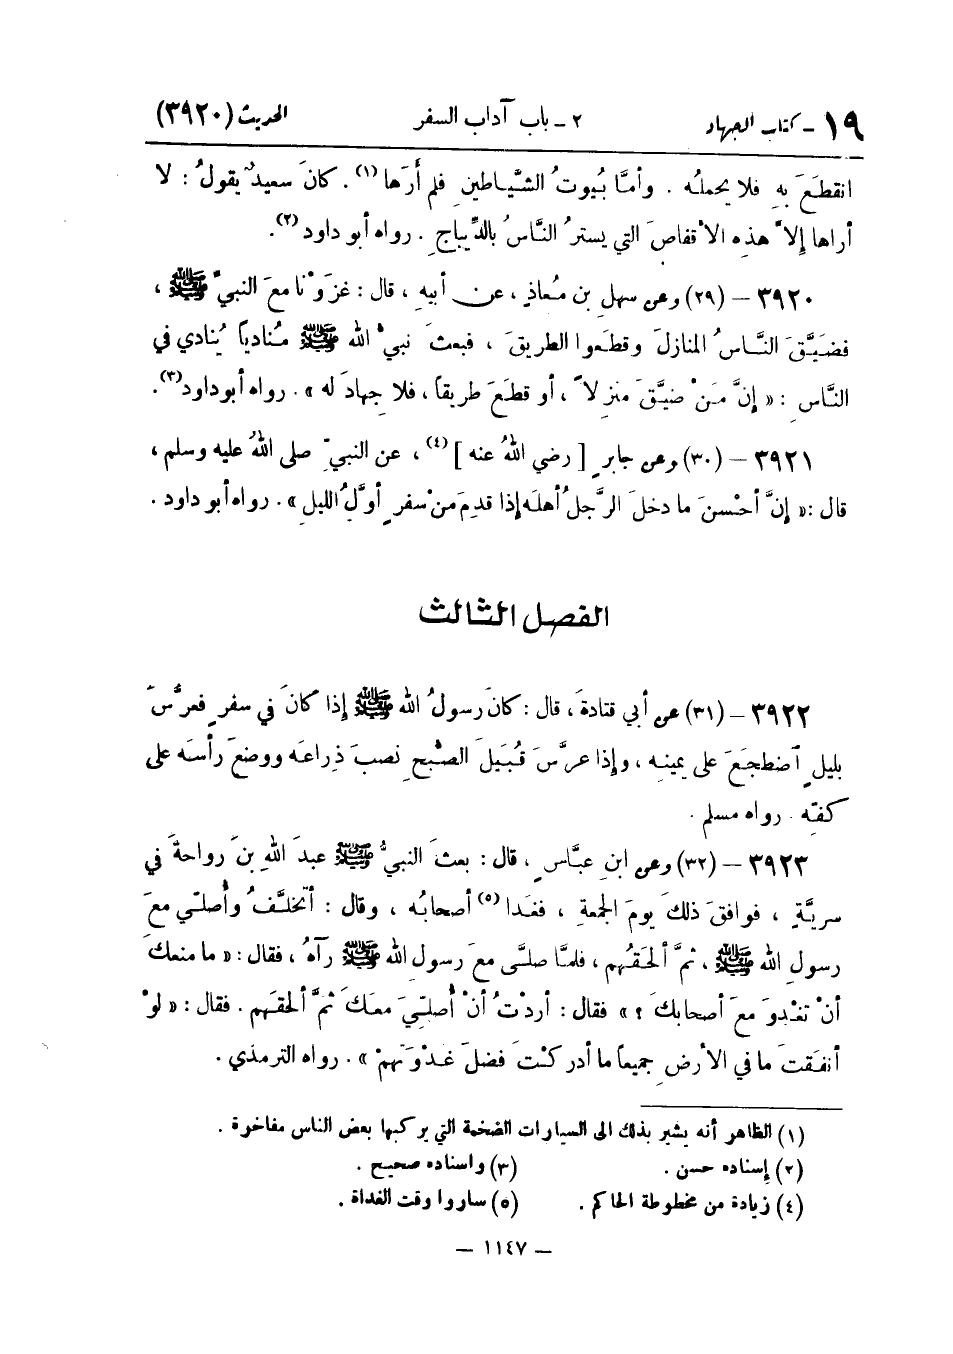 ١٩ - كتاب الجهاد ٢ - باب آداب السفر الحديث (٣٩٢٠)
انقطَعَ بهِ فلا يحملُه . وأمَّا بُيوتُ الشَّياطينِ فلم أرَها (١) . كانَ سعيدٌ يقولُ : لا
أراها إلاَّ هذِه الأقفاصَ التي يسترُ النَّاسُ بالدِّيباجِ . رواه أبو داود (٢) .
٣٩٢٠ - (٢٩) وعن سهلِ بن مُعاذٍ ، عن أبيهِ ، قال : غزَوْنا معَ النبيِّ ﷺ ،
فضَيَّقَ النَّاسُ المنازلَ وقطَعوا الطريقَ ، فبعثَ نبيُّ الله ﷺ مُنادياً يُنادي في
النَّاسِ : « إنَّ مَنْ ضيَّقَ منزلاً ، أو قطَعَ طريقاً ، فلا جِهادَ له » . رواه أبو داود (٣) .
٣٩٢١ - (٣٠) وعن جابرٍ [ رضي اللهُ عنه ] (٤) ، عن النبيِّ صلى اللهُ عليه وسلم ،
قال : « إنَّ أحْسنَ ما دخلَ الرَّجلُ أهلَه إذا قدِمَ منْ سفرٍ أوَّلُ الليلِ » . رواه أبو داود .
الفصل الثالث
٣٩٢٢ - (٣١) عن أبي قتادةَ ، قال : كانَ رسولُ الله ﷺ إذا كانَ في سفرٍ فعرَّسَ
بليلٍ اضطجَعَ على يمينِه ، وإذا عرَّسَ قُبَيلَ الصُّبحِ نصبَ ذِراعَه ووضعَ رأسَه على
كفِّه . رواه مسلم .
٣٩٢٣ - (٣٢) وعن ابنِ عبَّاسٍ ، قال : بعثَ النبيُّ ﷺ عبدَ اللهِ بنَ رواحةَ في
سريَّةٍ ، فوافقَ ذلكَ يومَ الجمعةِ ، فغَدا (٥) أصحابُه ، وقال : أتخلَّفُ وأُصلّي معَ
رسولِ الله ﷺ ، ثمَّ ألحَقُهم ، فلمَّا صلَّى مع رسولِ الله ﷺ رآهُ ، فقال : « ما منعكَ
أنْ تغْدوَ معَ أصحابكَ ؟ » فقال : أردْتُ أنْ أُصلّيَ معَكَ ثمَّ ألحقَهم . فقال : « لوْ
أنفَقتَ ما في الأرضِ جميعاً ما أدركْتَ فضلَ غدْوَتهمْ » . رواه الترمذي .
(١) الظاهر أنه يشير بذلك الى السيارات الضخمة التي يركبها بعض الناس مفاخرة .
(٢) إسناده حسن . (٣) واسناده صحيح .
(٤) زيادة من مخطوطة الحاكم . (٥) ساروا وقت الغداة .
- ١١٤٧ -